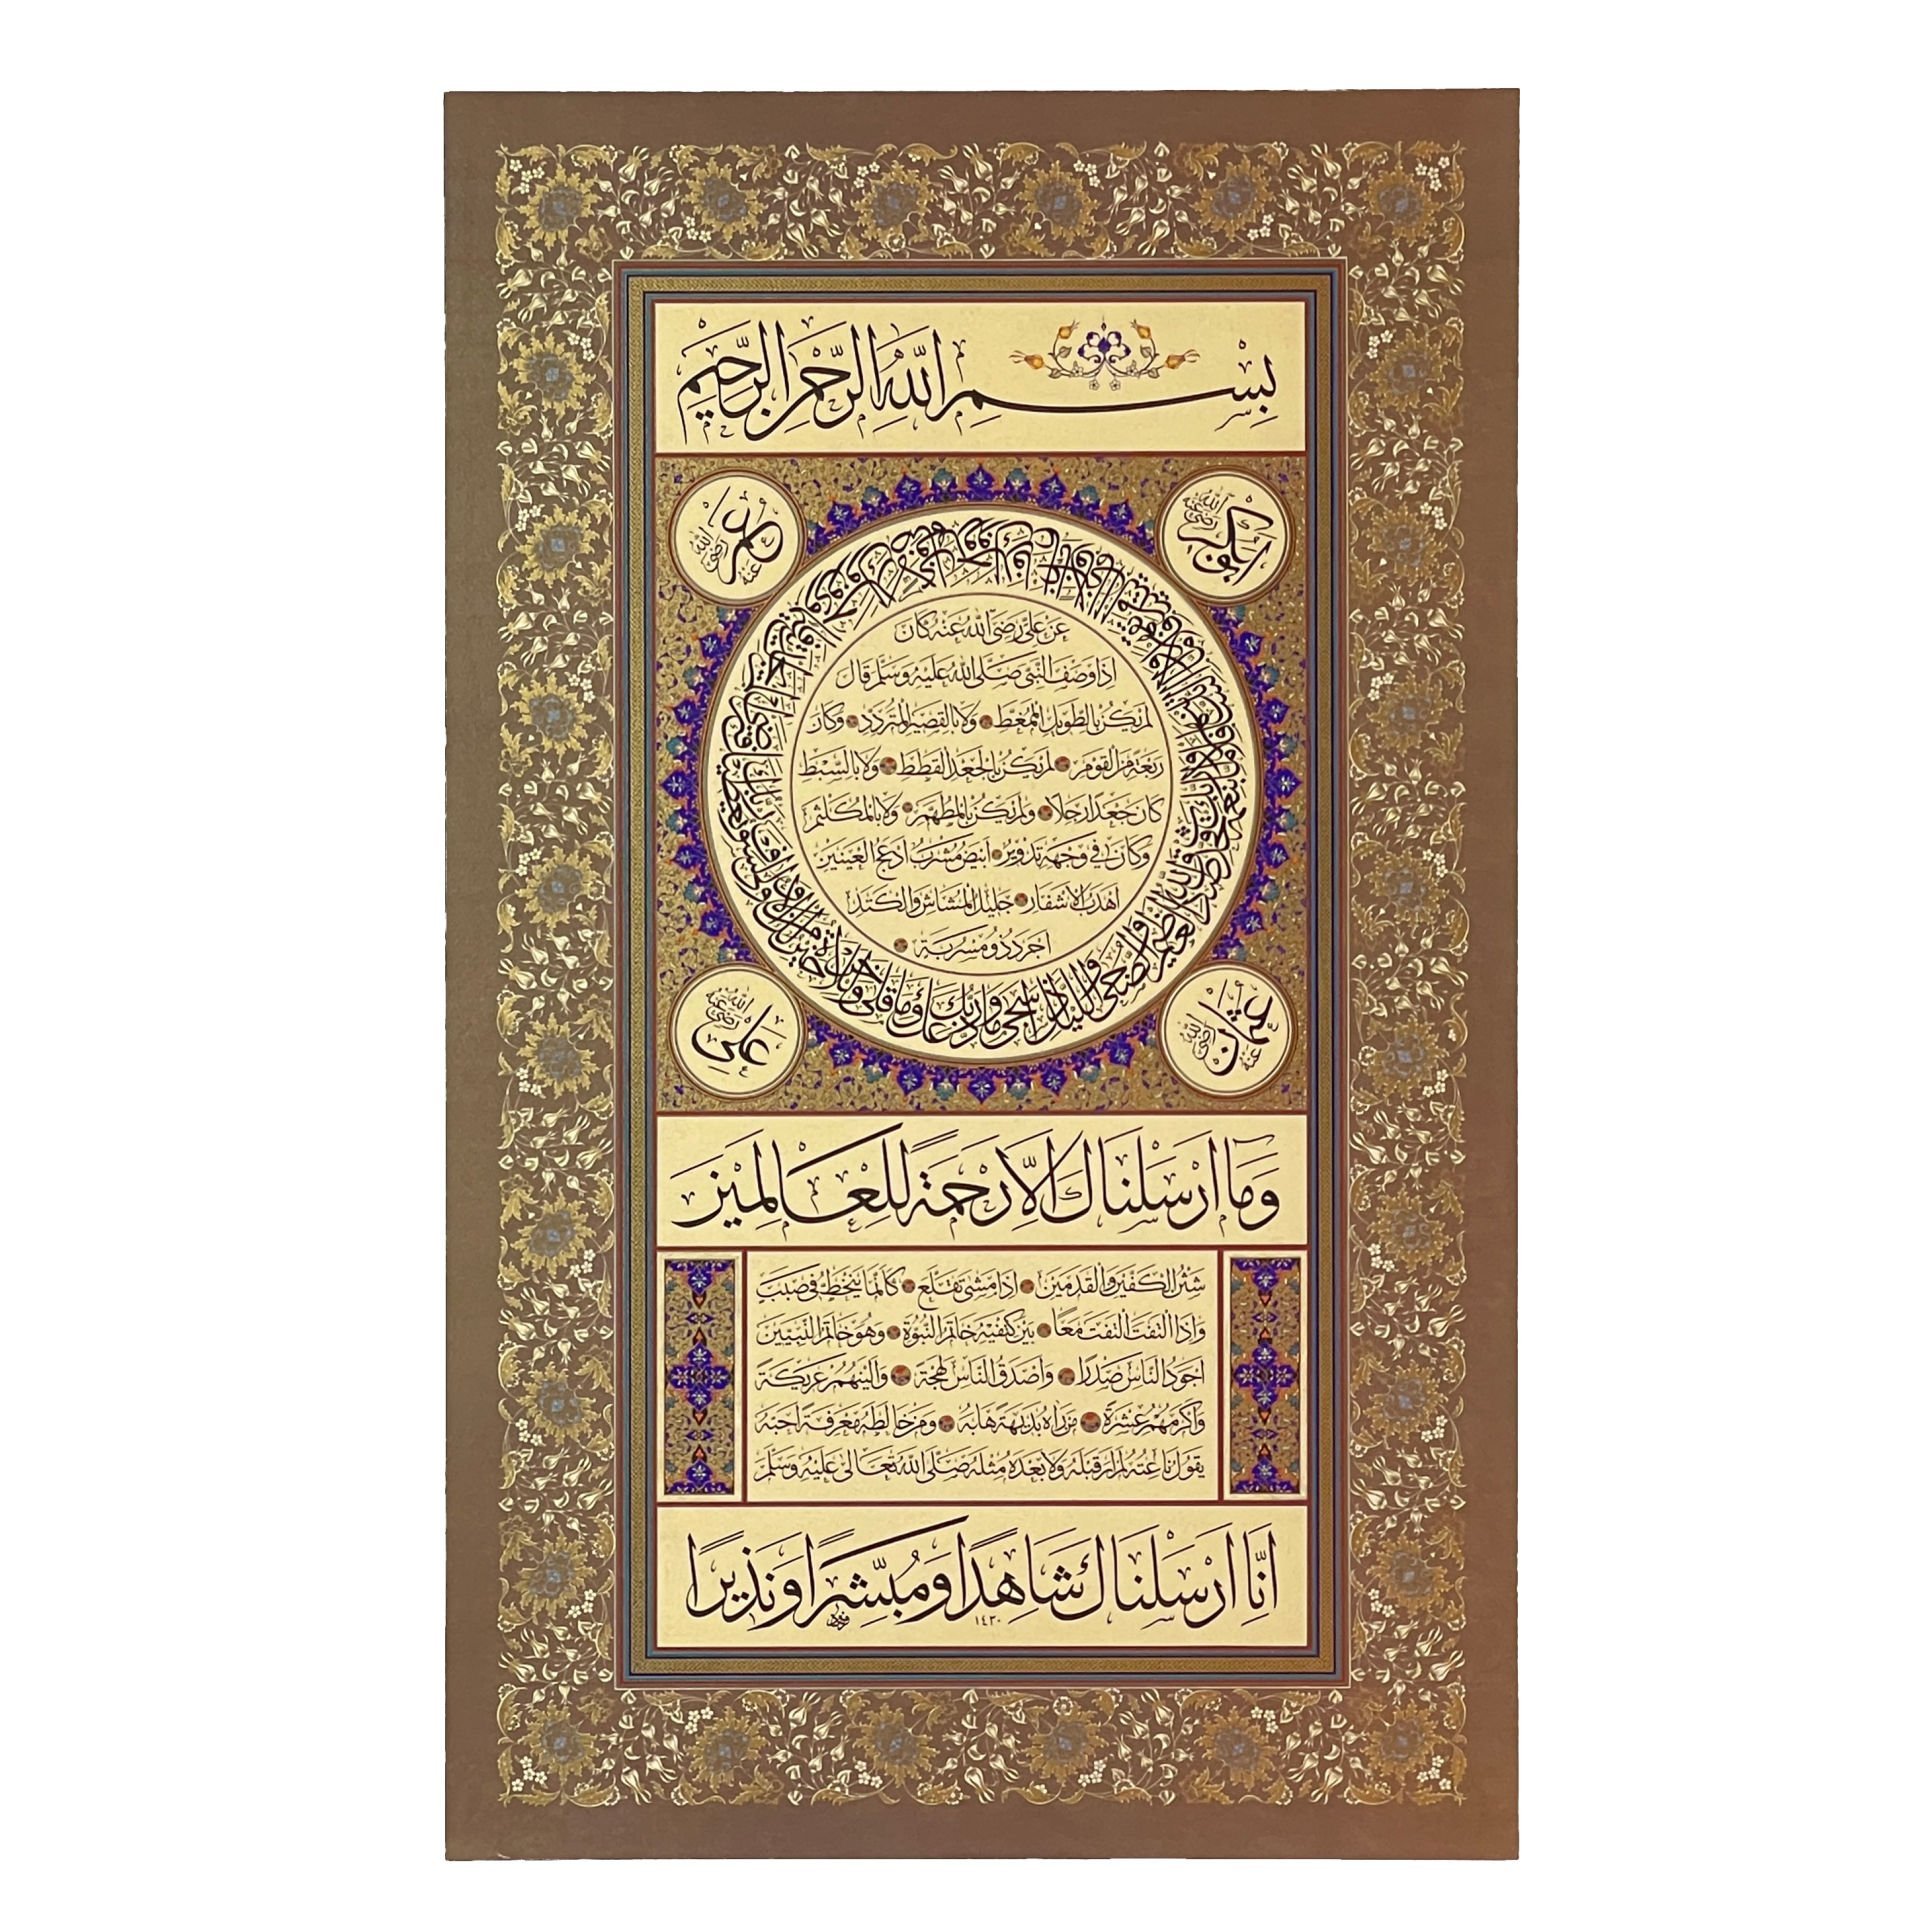 بِسْمِ اللهِ الرَّحْمٰنِ الرَّحِيمِ
ابوبكر رضي الله عنه
عمر رضي الله عنه
عن علي رضي الله عنه كان
اذا وصف النبي صلى الله عليه وسلم قال
لم يكن بالطويل الممغط ولا بالقصير المتردد وكان
ربعة من القوم لم يكن بالجعد القطط ولا بالسبط
كان جعدا رجلا ولم يكن بالمطهم ولا بالمكلثم
وكان في وجهه تدوير ابيض مشرب ادعج العينين
اهدب الاشفار جليل المشاش والكتد
اجرد ذو مسربة
والضحى والليل اذا سجى ما ودعك ربك وما قلى
عثمان رضي الله عنه
علي رضي الله عنه
وَمَا اَرْسَلْنَاكَ اِلَّا رَحْمَةً لِلْعَالَمِينَ
شثن الكفين والقدمين اذا مشى تقلع كانما ينحط في صبب
واذا التفت التفت معا بين كتفيه خاتم النبوة وهو خاتم النبيين
اجود الناس صدرا واصدق الناس لهجة والينهم عريكة
واكرمهم عشرة من راه بديهة هابه ومن خالطه معرفة احبه
يقول ناعته لم ار قبله ولا بعده مثله صلى الله تعالى عليه وسلم
اِنَّا اَرْسَلْنَاكَ شَاهِدًا وَمُبَشِّرًا وَنَذِيرًا
١٤٣٠